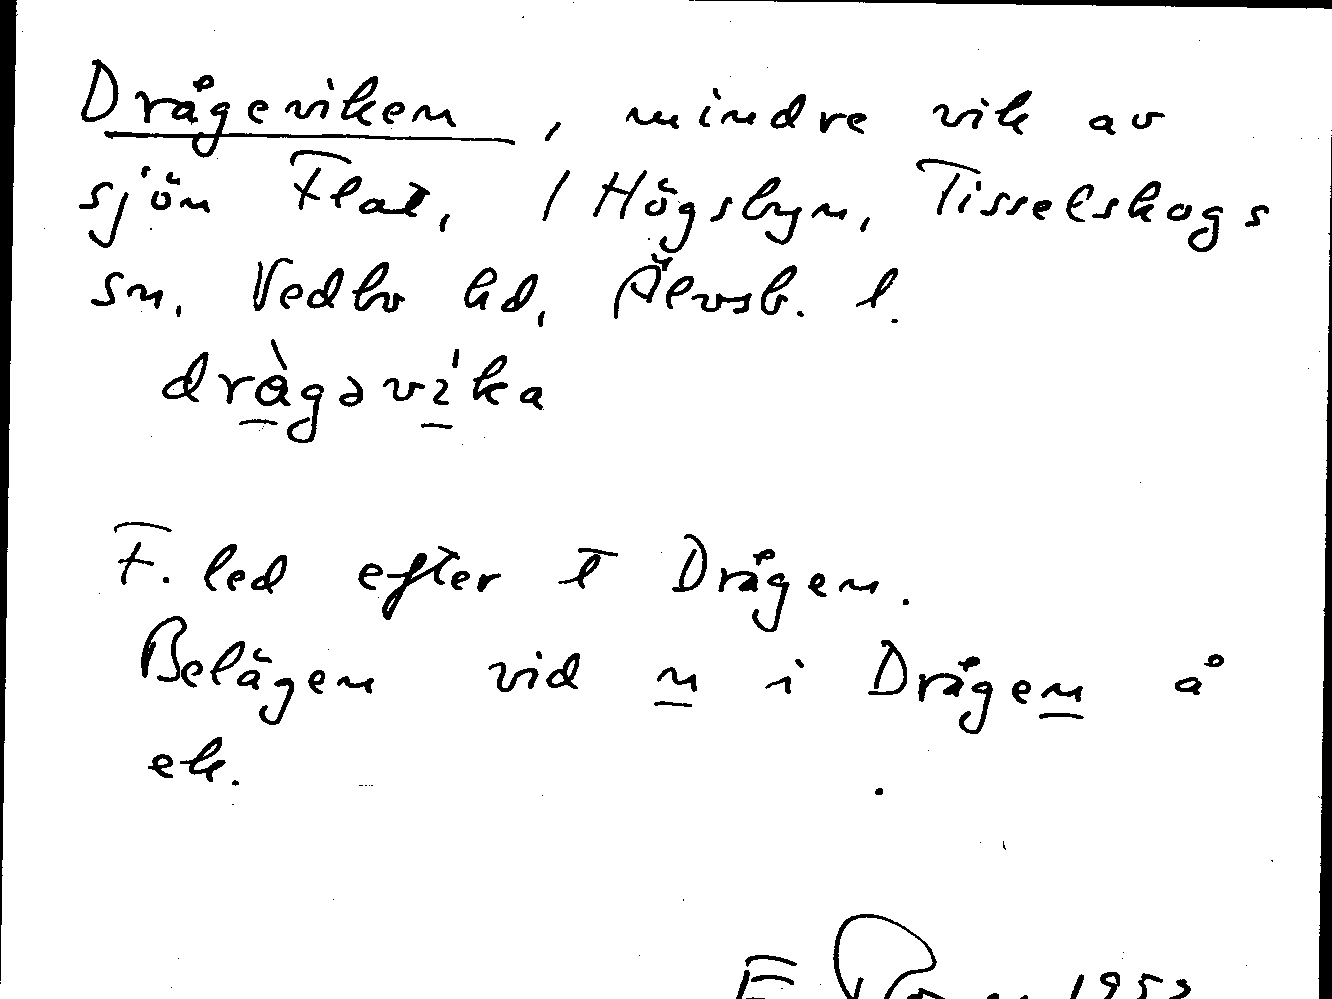 Drågeviken, mindre vik av
sjön Flat, / Högsbyn, Tisselskogs
sn, Vedbo hd, Älvsb. l.
dràgəvi'ka
F. led efter t Drågen.
Belägen vid n i Drågen å
ek.
E 1953